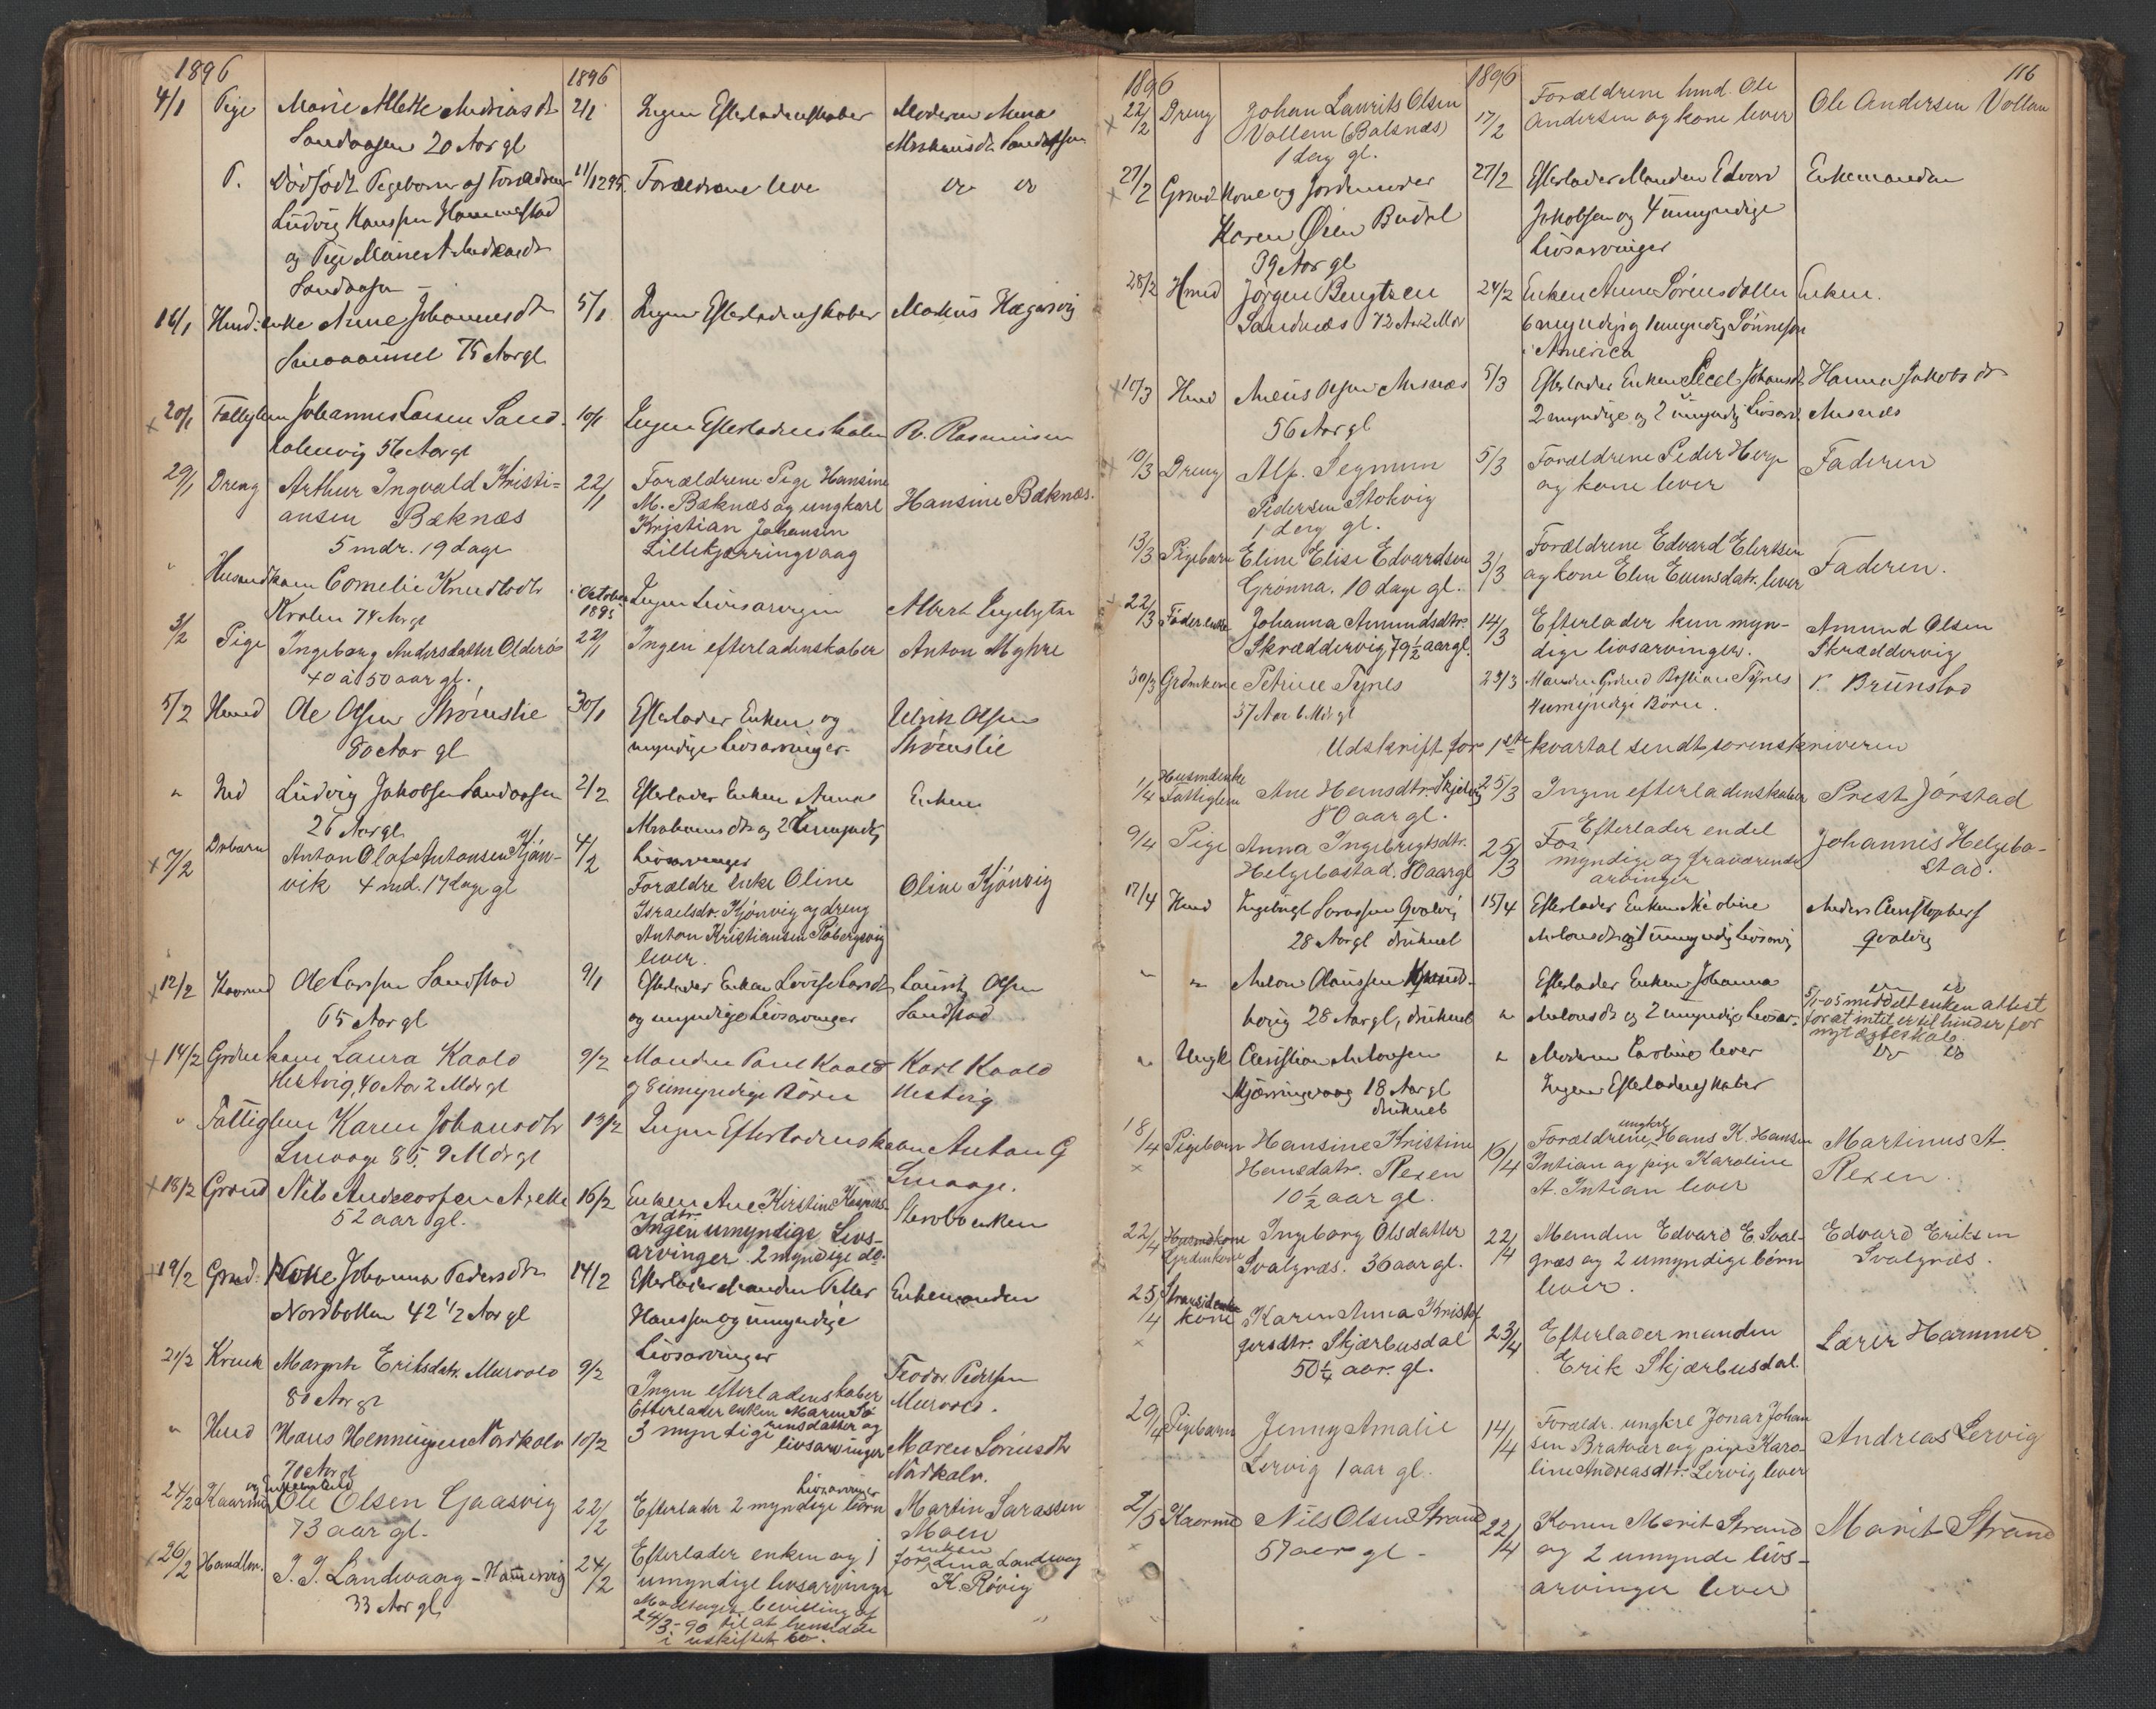 1896
1896
4/1 Pige Marie Alette Andrias dt 2/1 Ingen Efterladenskaber Moderen Anna
Sandaasen 20 Aar gl
P. Dødfødt Pigebarn af Forældrene 11/12 95. Forældrene leve do do
Ludvig Hanssen Hammestad
og Pige
Sandaasen
16/1 Husmd: enke Anne Johannesdtr 5/1 Ingen Efterladenskaber Markus Hægasvig
75 Aar gl
x 20/1 Fattiglem Johannes Larsen Sand- 10/1 Ingen Efterladenskaber R. Rasmussen
holmvig 56 Aar gl
29/1 Dreng Arthur Ingvald Kristi- 22/1 Forældrene Pige Hansine Hansine Bæknæs.
ansen Bæknæs M. Bæknæs og ungkarl
5 mdr. 19 dage Kristian Johansen
Lillekjærringvaag
" Husmandkone Cornelie Knudtsdtr i October 1895 Ingen Livsarvinger Albert Ingebrigtsen
74 Aar gl
3/2 Pige Ingeborg Andersdatter Olderøs 22/1 Ingen efterladenskaber Anton Myhre
40 à 50 aar gl.
5/2 Husmd Ole Olsen Strømslie 30/1 Efterlader Enken og Ulrik Olsen
80 Aar gl myndige Livsarvinger Strømslie
" Ind Ludvig Jakobsen Sandaasen 2/2 Efterlader Enken Anna Enken
26 Aar gl. Abrahamsdtr og 2 umyndig
Livsarvinger
x 7/2 Drbarn Anton Olaf Antonsen Kjøn- 4/2 Forældre Enke Oline Oline Kjønvig
vik 4 md. 17 dage gl Israelsdtr. Kjønvig og dreng
Anton Kristiansen Robergsvig
lever.
x 12/2 Kaarmd Ole Larsen Sandstad 9/1 Efterlader Enken Lovise Larsdt Laurits Olsen
65 Aar gl og myndige Livsarvinger Sandstad
x 14/2 Grdmkone Laura Kaald 9/2 Manden Paul Kaald Karl Kaald
Hestvig, 40 Aar 2 Mdr gl og 8 umyndige Børn Hestvig
" Fattiglem Karen Johansdtr 13/2 Ingen Efterladenskaber Anton G
Smaage 85, 9 Mdr gl Smaage.
x 18/2 Grdmd Nils Andreassen 16/2 Enken Ane Kirstine Kaspers- Sterboenken
52 aar gl. dtr.
Ingen umyndige Livs-
arvinger 2 myndige do.
x 19/2 Grmd: Kone Johanna Pedersdtr 14/2 Efterlader Manden Petter Enkemanden
Nordbotten 42 1/2 Aar gl Hanssen og umyndige
Livsarvinger
21/2 Margrete Eriksdatr. Mursvold 9/2 Ingen efterladenskaber Teodor Pedersen
80 Aar gl
" Husmd Hans Henningsen Nordkalv 10/2 Efterlader enken Maren Sø- Maren Sørensdtr
70 Aar gl rensdatter og Nordkalv.
3 myndige livsarvinger
24/2 Kaarmd og Ole Olsen Gaasvig 22/2 Efterlader 2 myndige børn Livsarvinger Martin Sarassen
73 aar gl. Moen
x 26/2 Handlm. J. J. Landevaag - Hamervig 24/2 Efterlader enken og 1 for enken Lina Landevaag
33 Aar gl umyndige livsarvinger K. Røvig
Modtaget bevilling af
24/3-90 til at hensidde
i uskiftet bo.
1896
1896
116
x 22/2 Dreng Johan Laurits Olsen 17/2 Forældrene hmd. Ole Ole Andersen Vollan
Vollem (Balsnæs) Andersen og kone lever
1 dag gl.
x 27/2 Grmd Kone og Jordemoder 27/2 Efterlader Manden Edvard Enkemanden
Karen Øien Budal Jakobsen og 4 umyndige
39 Aar gl Livsarvinger
28/2 Hmd Jørgen Bengtsen 24/2 Enken Anne Sørensdatter Enken.
Sandnæs 72 Aar 2 Mdr 6 myndig og 1 umyndig Sønnesøn
i America
x 10/3 Hmd Olsen Aunæs 5/3 Efterlader Enken Johansdt Hanna Jakobsdt
56 Aar gl 2 myndige og 2 umyndig Livsarv. Aunæs
10/3 Dreng Alf. Segmun 5/3 Forældrene Peder Herje Faderen
Pedersen Stokvig og kone lever
1 dag gl.
13/3 Pigebarn Eline Elise Edvardsen 3/3 Forældrene Edvard Elertsen Faderen.
Grønna. 10 dage gl. og kone Elen Enunsdatr. lever
22/3 Føderenke Johanna Amundsdtr. 14/3 Efterlader kun myn- Amund Olsen
Skræddervig 79 1/2 aar gl. dige livsarvinger. Skræddervig
30/3 Grdmkone Petrine Tynes 23/3 Manden Grdmd Bastian Tynes P. Brunstad
37 Aar 6 Mdr gl 4 umyndige Børn.
Udskrift for 1ste kvartal sendt sorenskriveren
1/4 Husmdenke Fattiglem Ane Hansdtr. Skjelvig 25/3 Ingen efterladenskaber Prest Jørstad
80 aar gl.
9/4 Pige Anna Ingebrigtsdtr. 25/3 Efterlader endel Johannes Helgebo-
Helgebostad. 80 aar gl myndige og fraværende stad.
arvinger
17/4 Hmd Ingebrigt Sarassen Qvalvig 15/4 Efterlader Enken Nicoline Anders Christophers
28 Aar gl druknet Antonsdtr og 1 umyndig Livsarvig Qvalvig
" " Anton Olaussen " Efterlader Enken Johanna do do
borig 28 Aar gl, druknet Antonsdt og 2 umyndige Livsar- 5/1-05 meddelt enken attest
for at intet er til hinder for
nyt ægteskab.
" Ungk Christian Antonsen " Moderen Caroline lever do do
Kjærringvaag 18 Aar gl Ingen Efterladenskaber
druknet
18/4 Pigebarn Hansine Kristine 16/4 Forældrene ungkrl Hans K. Hansen Martinus A.
x Hansdatr. Rexen Intian og pige Karoline Rexen.
10 1/2 aar gl. A. Intian lever
22/4 Husmdkone Gardmkone Ingborg Olsdatter 22/4 Manden Edvard E. Sval- Edvard Eriksen
Svalgnæs. 36 aar gl. gnæs og 2 umyndige børn Svalgnæs.
lever.
25/4 kone Karen Anna Kristof- 23/4 Efterlader manden Lærer Hammer
x fersdtr. Skjærbusdal Erik Skjærbusdal.
50 1/4 aar gl.
29/4 Pigebarn Jenny Amalie 14/4 Forældr. ungkrl Jonar Johan Andreas Lervig
Lervig 1 aar gl. sen Bratvær og pige Karo-
line Andreasdtr. Lervig lever
2/5 Kaarmd Nils Olsen Strand 22/4 Konen Marit Strand Marit Strand
x 57 aar gl. og 2 umynde livs-
arvinger lever